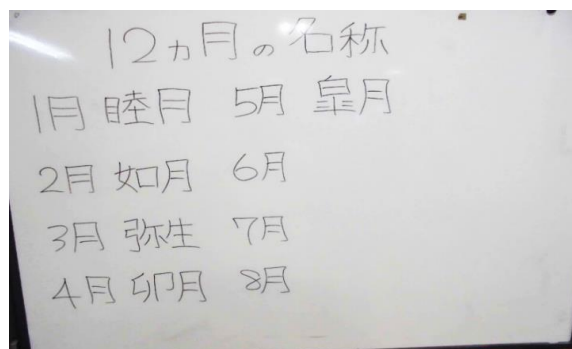 12ヵ月の名称
1月 睦月 5月 皐月
2月 如月 6月
3月 弥生 7月
4月 卯月 8月